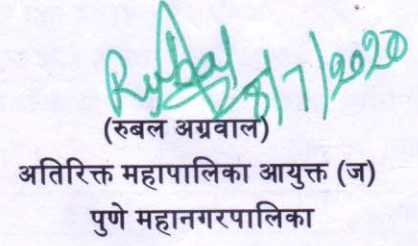 Rubal 8/7/2020
(रुबल अग्रवाल)
अतिरिक्त महापालिका आयुक्त (ज)
पुणे महानगरपालिका